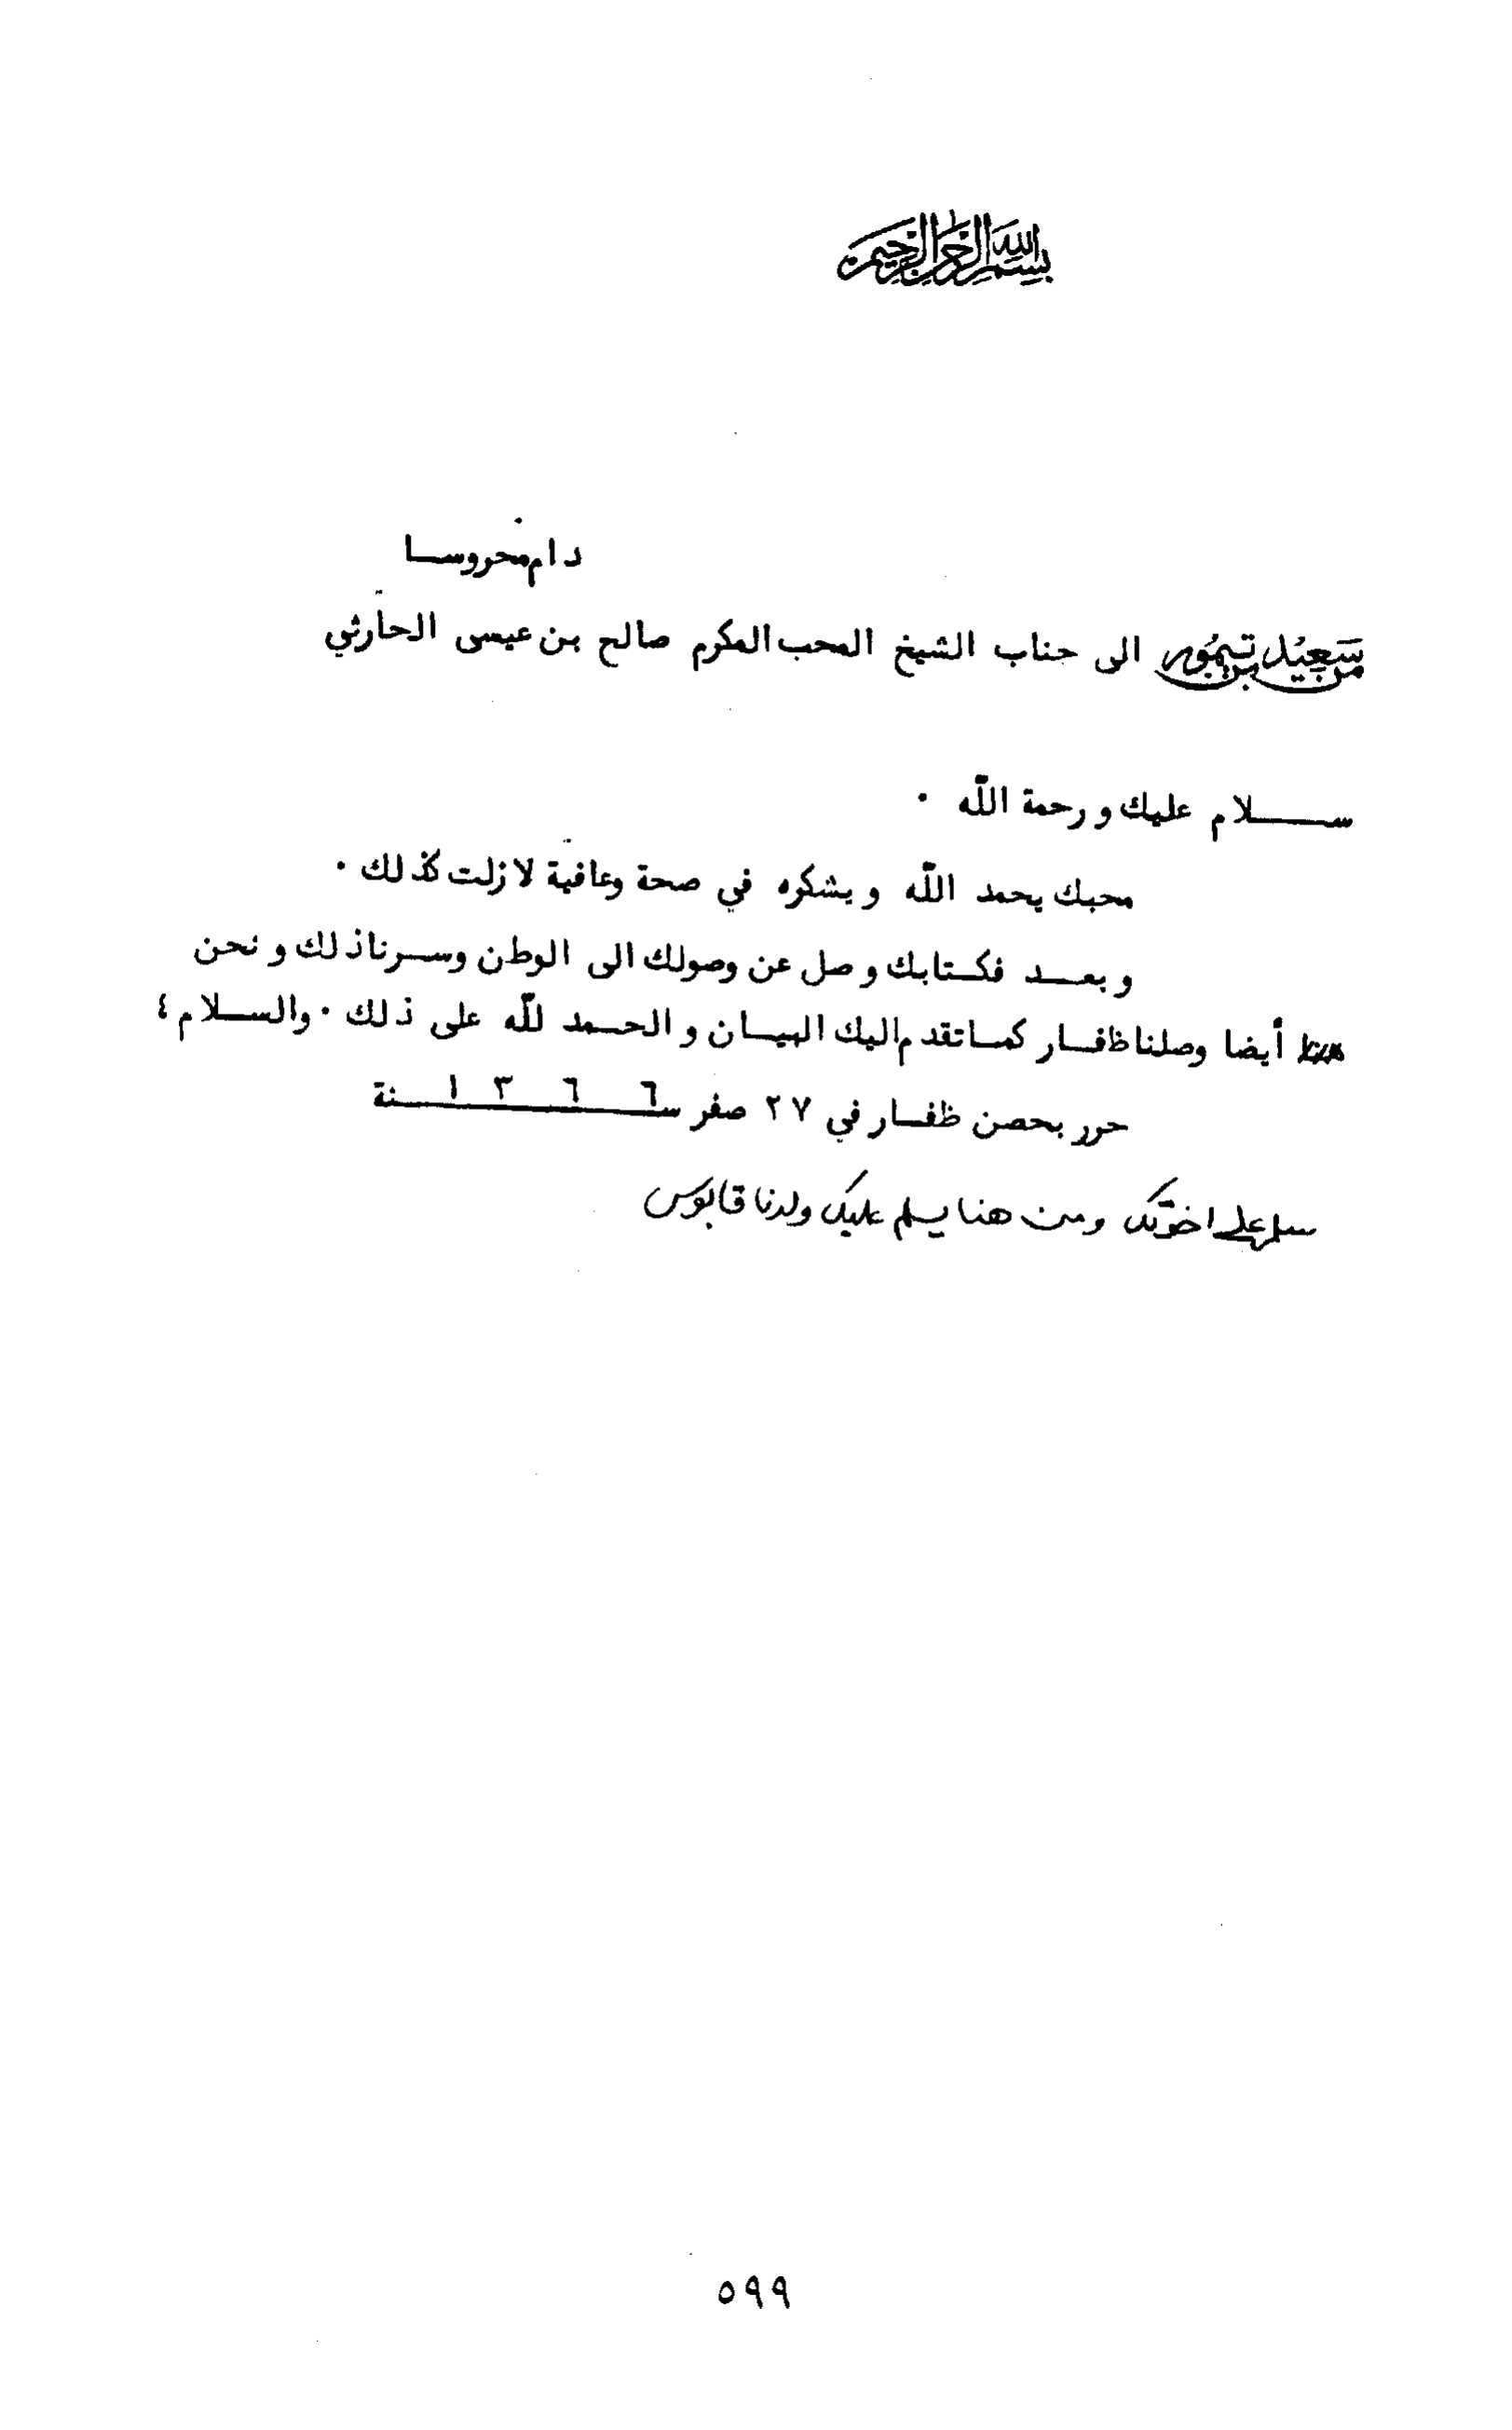 بسم الله الرحمن الرحيم
دام محروسا
من سعيد بن تيمور الى جناب الشيخ المحب المكرم صالح بن عيسى الحارثي
سلام عليك ورحمة الله .
محبك يحمد الله ويشكره في صحة وعافية لا زلت كذلك .
وبعد فكتابك وصل عن وصولك الى الوطن وسرنا ذلك ونحن
أيضا وصلنا ظفار كما تقدم اليك البيان والحمد لله على ذلك . والسلام ؛
حرر بحصن ظفار في ٢٧ صفر سنة ١٣٦٦
سلم على اخوتك ومن هنا يسلم عليك ولدنا قابوس
٥٩٩